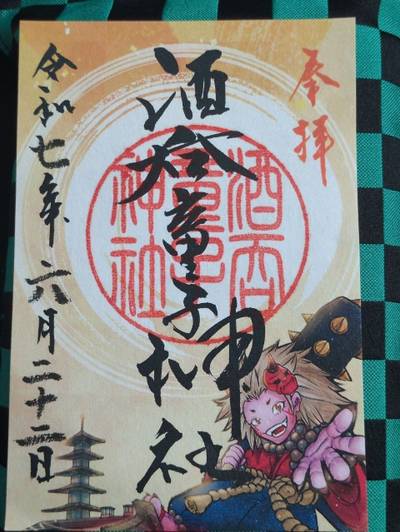 奉拝
酒呑童子神社
酒呑
童子
神社
令和七年 六月二十二日